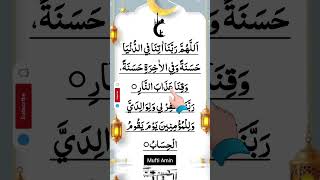 اَللّٰهُمَّ رَبَّنَا اٰتِنَا فِي الدُّنْيَا
حَسَنَةً وَّفِي الْاٰخِرَةِ حَسَنَةً،
وَّقِنَا عَذَابَ النَّارِ○
رَبَّنَا لِيْ وَلِوَالِدَيَّ
وَلِلْمُؤْمِنِيْنَ يَوْمَ يَقُوْمُ
الْحِسَابُ○
Mufti Amin